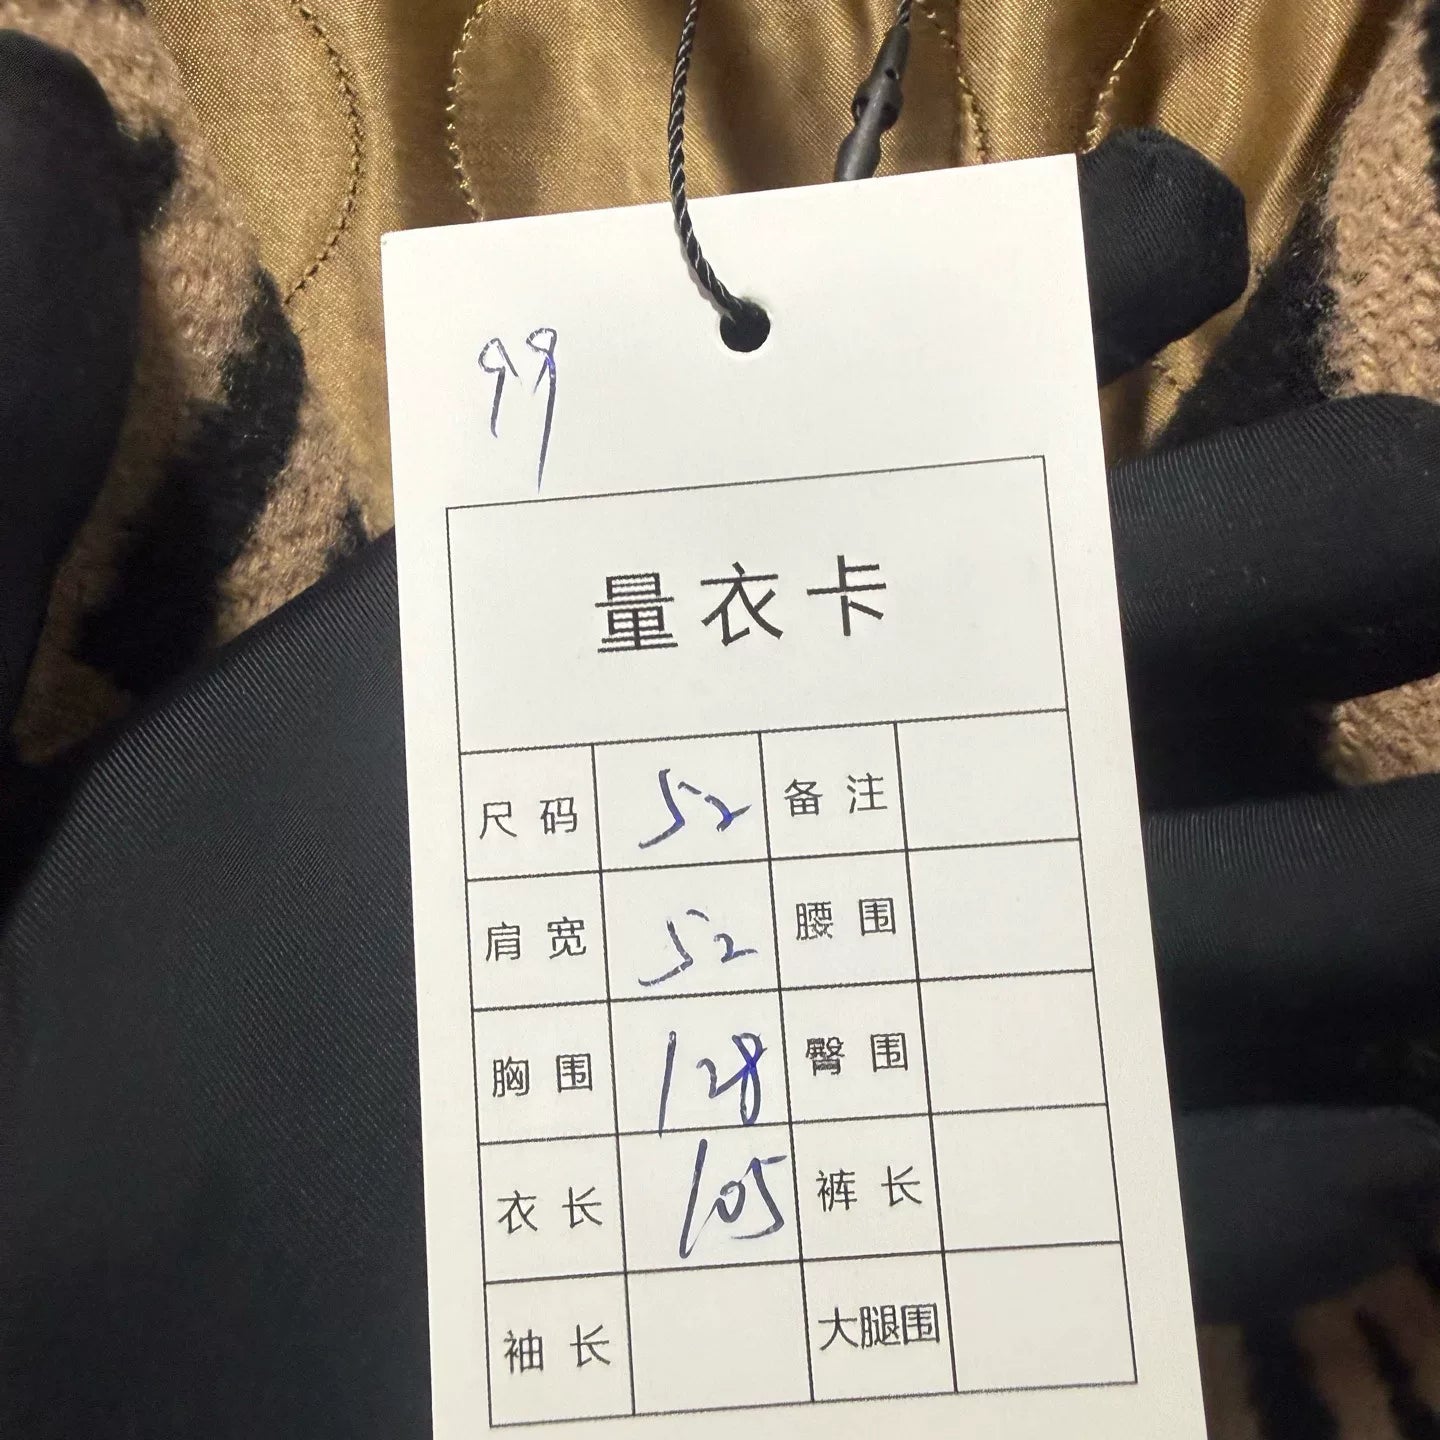 99
量衣卡
尺码 52 备注
肩宽 52 腰围
胸围 128 臀围
衣长 105 裤长
袖长 大腿围